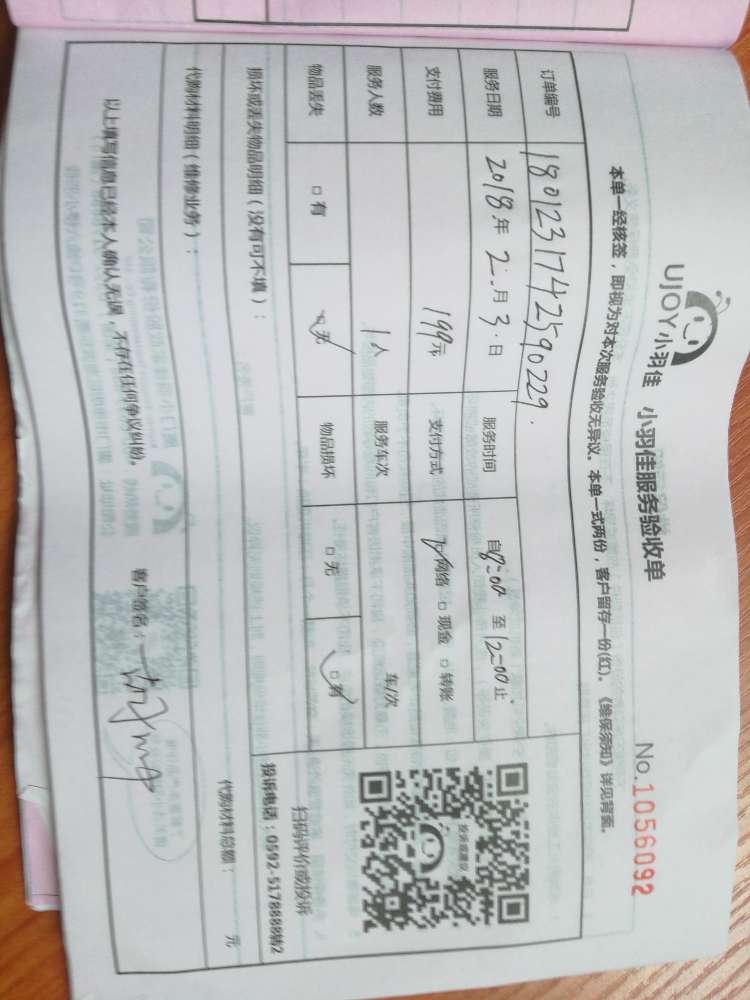 UJOY小羽佳 小羽佳服务验收单 No.1056092
本单一经核签，即视为对本次服务验收无异议。本单一式两份，客户留存一份(红)。《维保须知》详见背面。
订单编号 1801231742590229.
服务日期 2018年2.月3.日 服务时间 自8:00 至 12:00止
支付费用 199元 支付方式 网络 □ 现金 □ 转账
服务人数 1人 服务车次 车/次
物品丢失 □ 有 □ 无 物品损坏 □ 无 □ 有
投诉或建议
扫码评价或投诉
投诉电话：0592-5178888转2
损坏或丢失物品明细（没有可不填）：
代购材料明细（维修业务）： 代购材料总额： 元
以上填写信息已经本人确认无误，不存在任何争议纠纷。 客户签名：